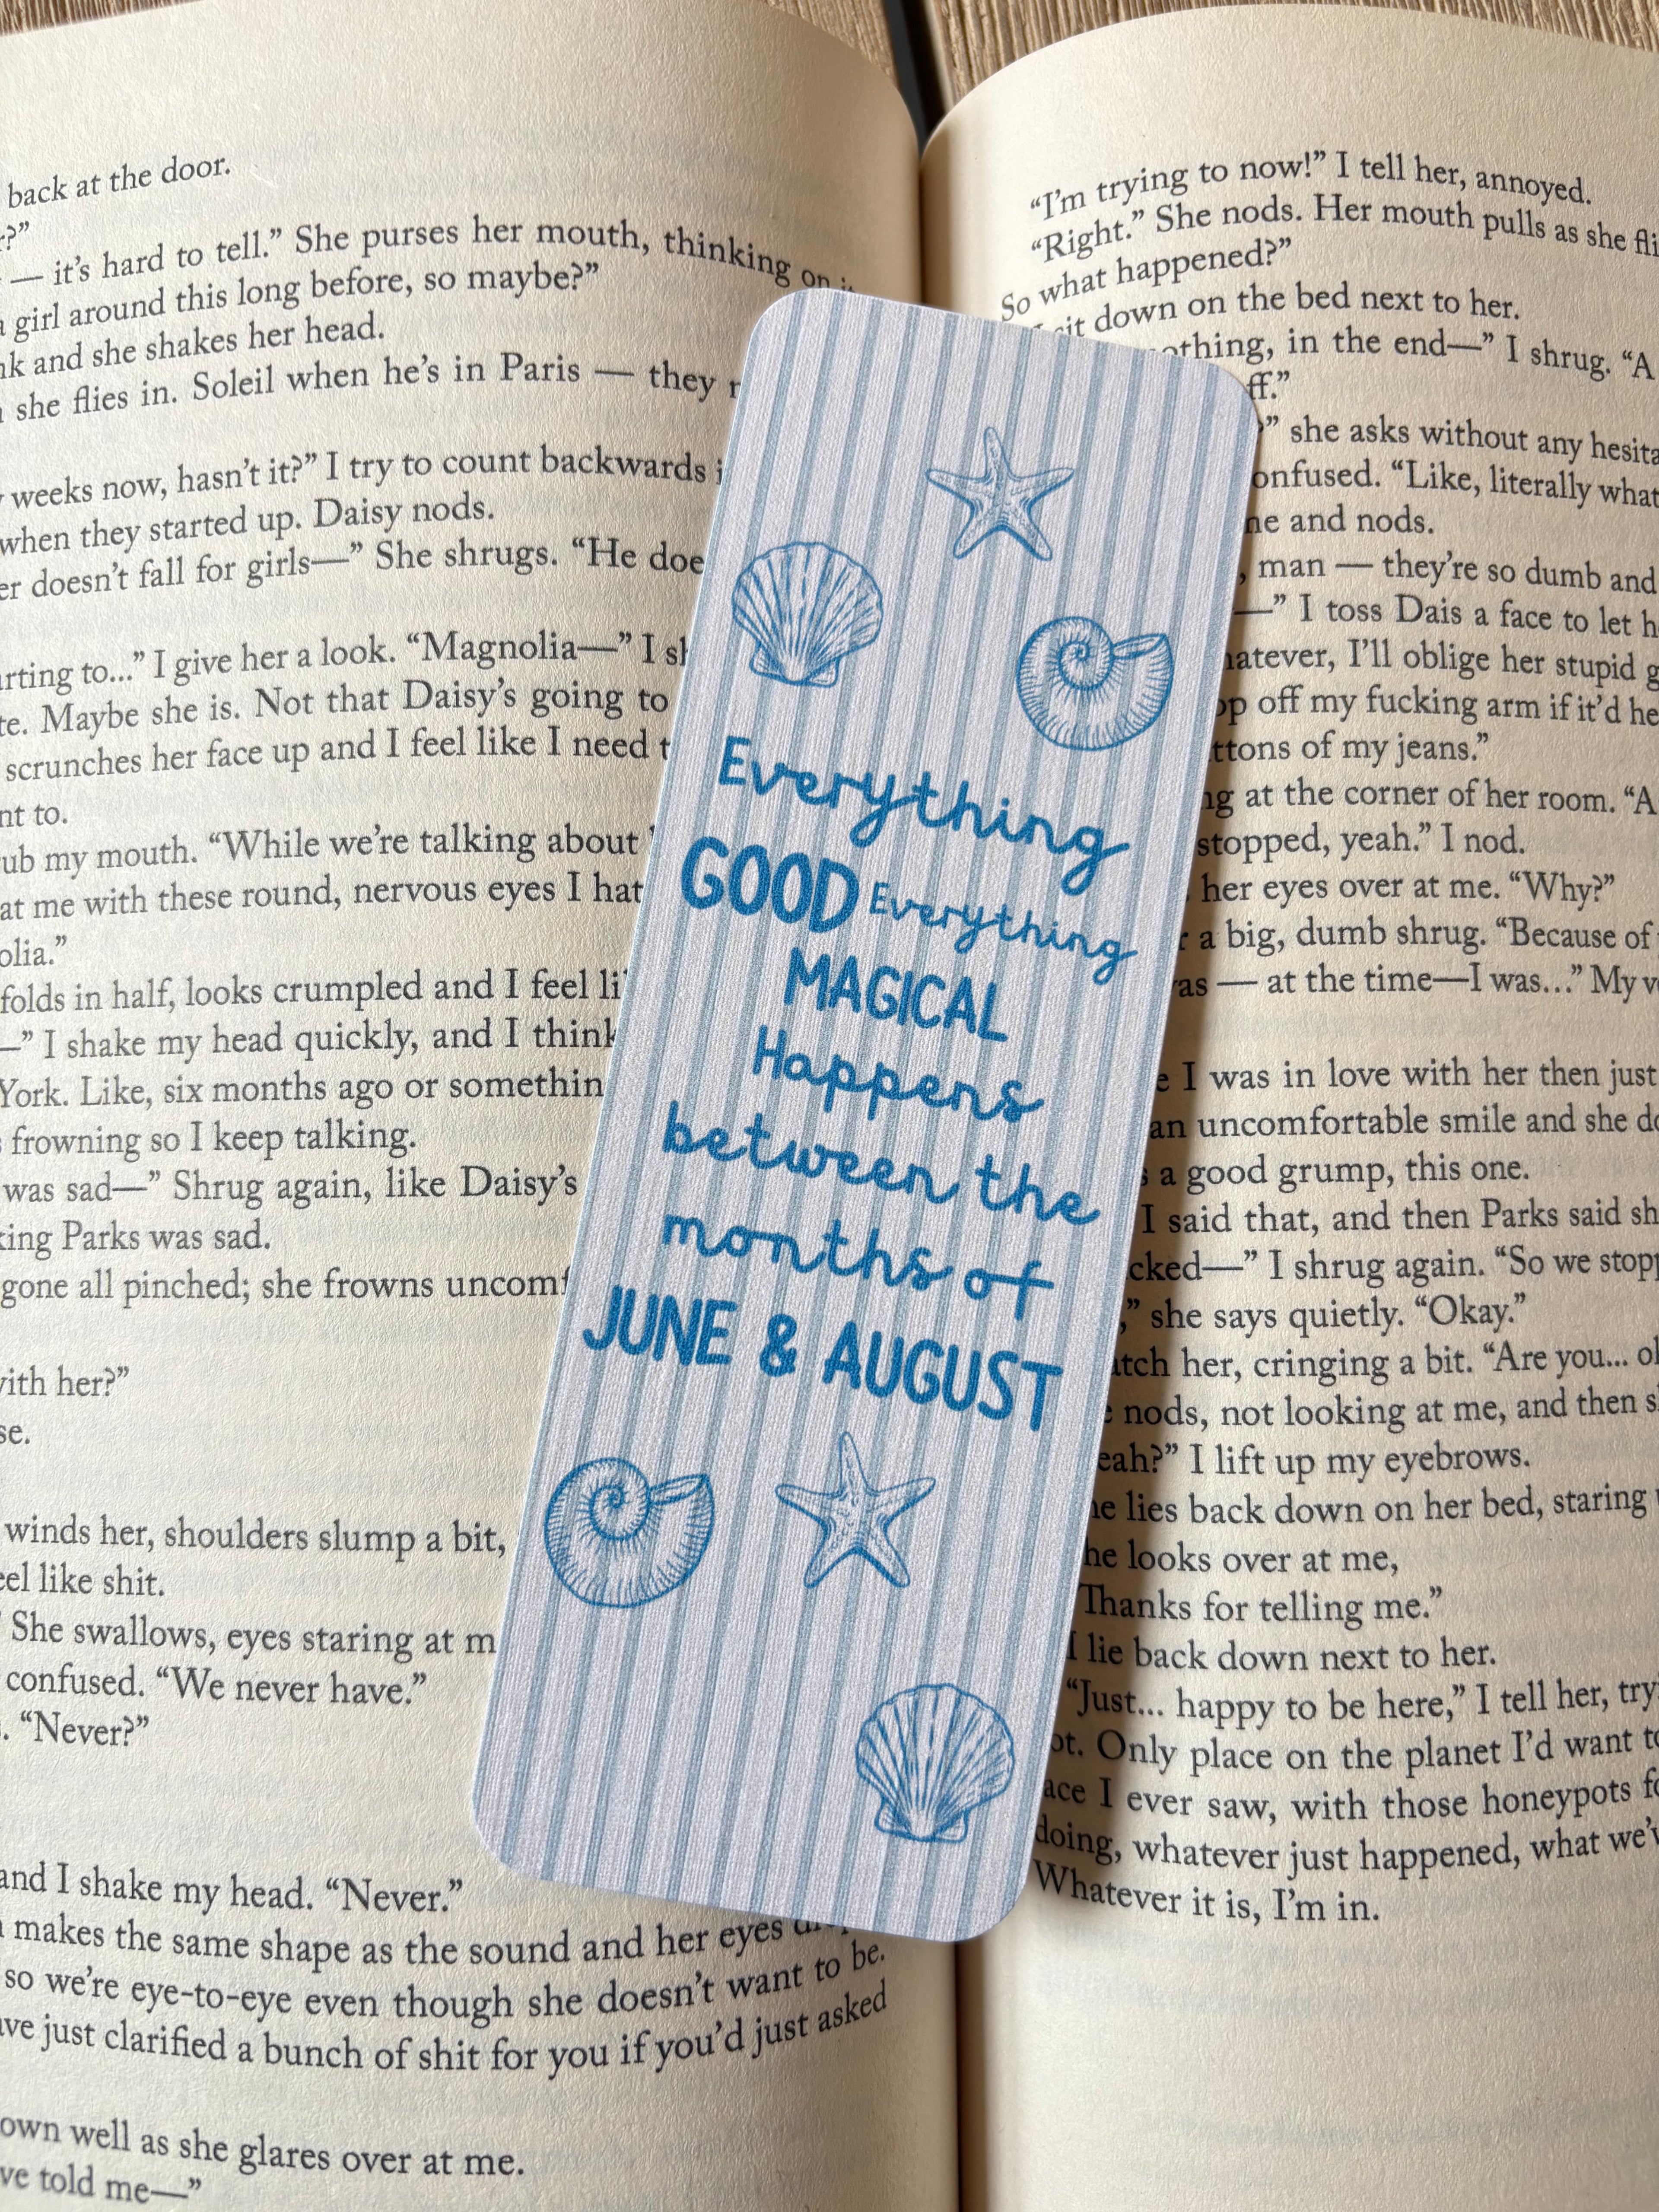 back at the door.
— it's hard to tell.” She purses her mouth, thinking on
girl around this long before, so maybe?”
and she shakes her head.
she flies in. Soleil when he's in Paris — they
weeks now, hasn't it?” I try to count backwards
when they started up. Daisy nods.
doesn't fall for girls—” She shrugs. “He
to...” I give her a look. “Magnolia—” I
Maybe she is. Not that Daisy's going to
scrunches her face up and I feel like I need
to.
my mouth. “While we're talking about
at me with these round, nervous eyes I
folds in half, looks crumpled and I feel
—” I shake my head quickly, and I think
York. Like, six months ago or
frowning so I keep talking.
was sad—” Shrug again, like Daisy's
Parks was sad.
gone all pinched; she frowns
with her?”
winds her, shoulders slump a bit,
like shit.
She swallows, eyes staring at
confused. “We never have.”
“Never?”
and I shake my head. “Never.”
makes the same shape as the sound and her eyes
so we're eye-to-eye even though she doesn't want to be.
just clarified a bunch of shit for you if you'd just asked
well as she glares over at me.
told me—”
Everything
GOOD Everything
MAGICAL
Happens
between the
months of
JUNE & AUGUST
“I'm trying to now!” I tell her, annoyed.
“Right.” She nods. Her mouth pulls as she
So what happened?”
sit down on the bed next to her.
in the end—” I shrug. “A
she asks without any
“Like, literally what
and nods.
man — they're so dumb and
—” I toss Dais a face to let
I'll oblige her stupid
off my fucking arm if it'd
of my jeans.”
at the corner of her room. “A
stopped, yeah.” I nod.
her eyes over at me. “Why?”
a big, dumb shrug. “Because of
— at the time—I was...” My
I was in love with her then just
an uncomfortable smile and she
a good grump, this one.
I said that, and then Parks said
I shrug again. “So we
she says quietly. “Okay.”
her, cringing a bit. “Are you...
nods, not looking at me, and then
I lift up my eyebrows.
lies back down on her bed, staring
looks over at me,
Thanks for telling me.”
I lie back down next to her.
“Just... happy to be here,” I tell her,
Only place on the planet I'd want
I ever saw, with those honeypots
doing, whatever just happened, what
Whatever it is, I'm in.